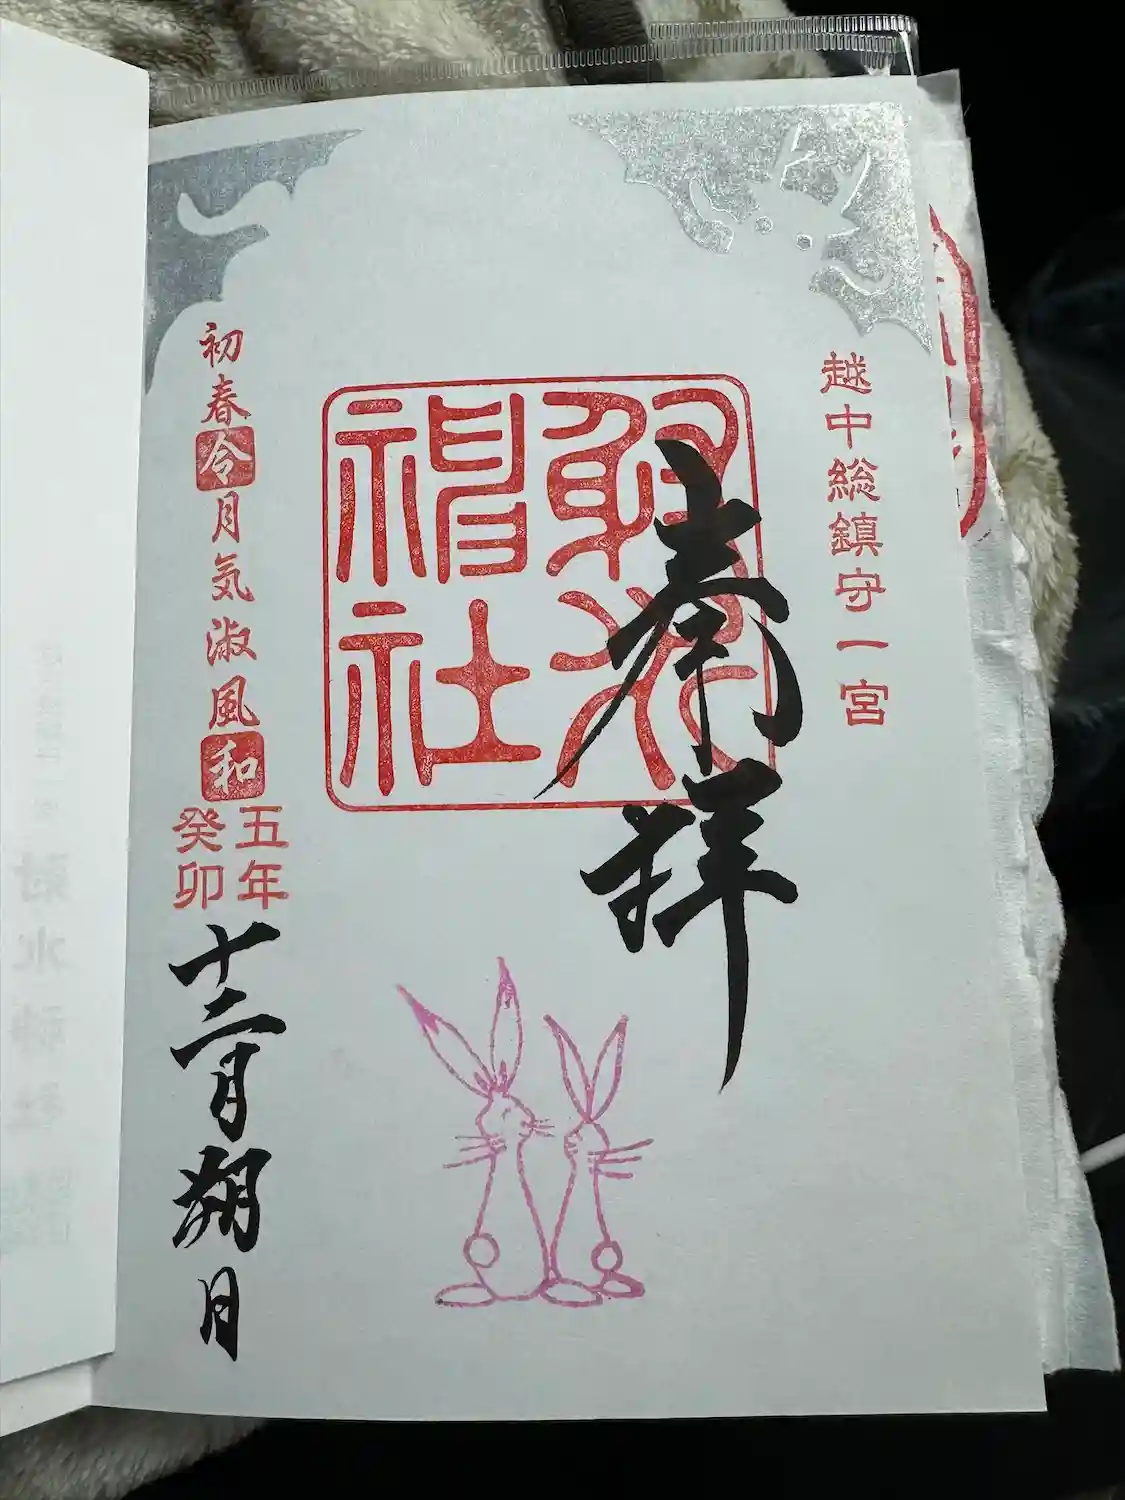 越中総鎮守一宮
奉拝
射水
神社
初春令月気淑風和
五年
癸卯
十二月朔日